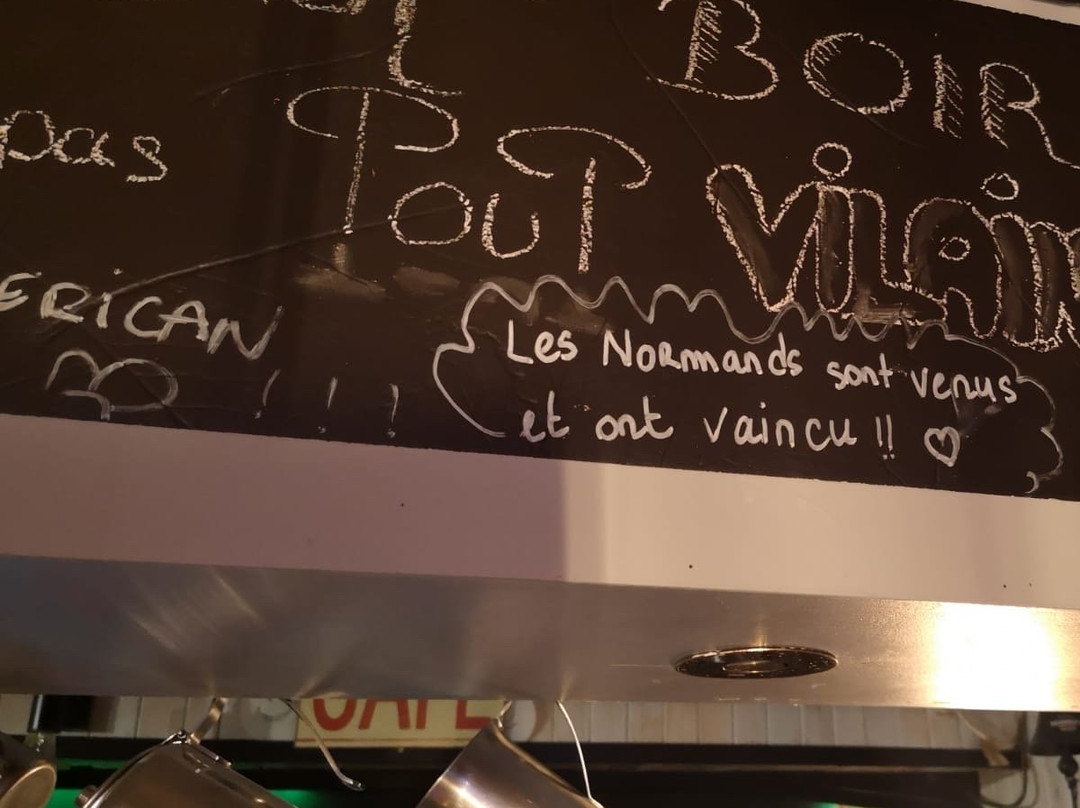 BOIR
pas Tout VILAIN
ERICAN
!!!
Les NoRmands sont venus
et ont vaincu !! ♡
CAFE